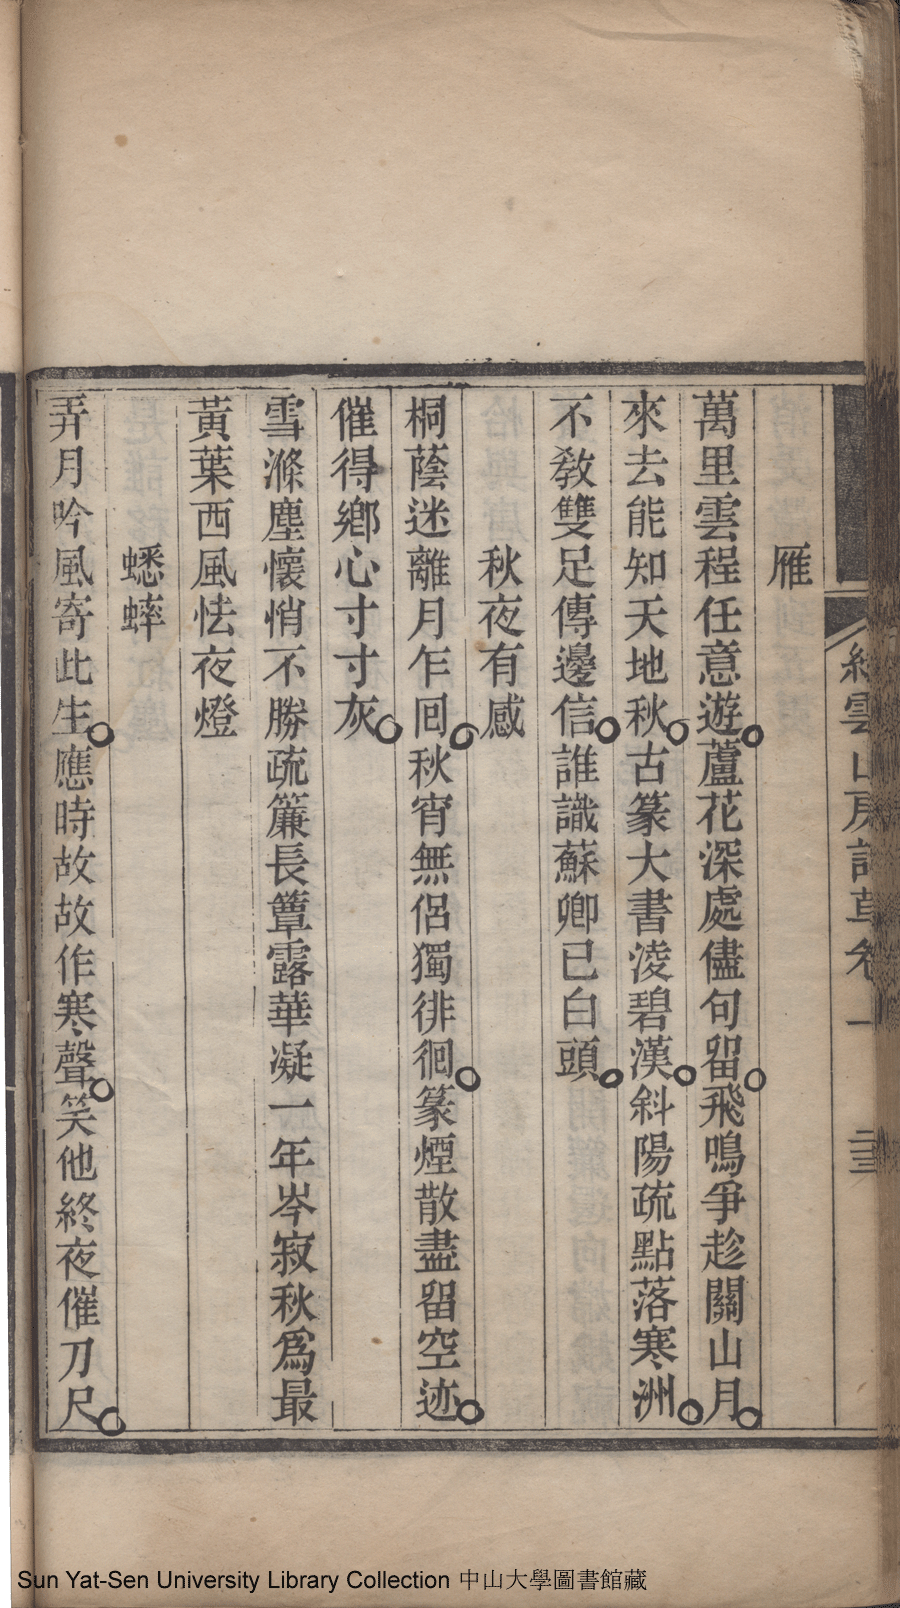 雲山房詩草卷一
雁
萬里雲程任意遊蘆花深處儘句留飛鳴爭趁關山月
來去能知天地秋古篆大書淩碧漢斜陽疏點落寒洲
不敎雙足傳邊信誰識蘇卿已白頭
秋夜有感
桐蔭迷離月乍囘秋宵無侶獨徘徊篆煙散盡留空迹
催得鄉心寸寸灰
雪滌塵懷悄不勝疏簾長簟露華凝一年岑寂秋爲最
黃葉西風怯夜燈
蟋蟀
弄月吟風寄此生應時故故作寒聲笑他終夜催刀尺
Sun Yat-Sen University Library Collection 中山大學圖書館藏